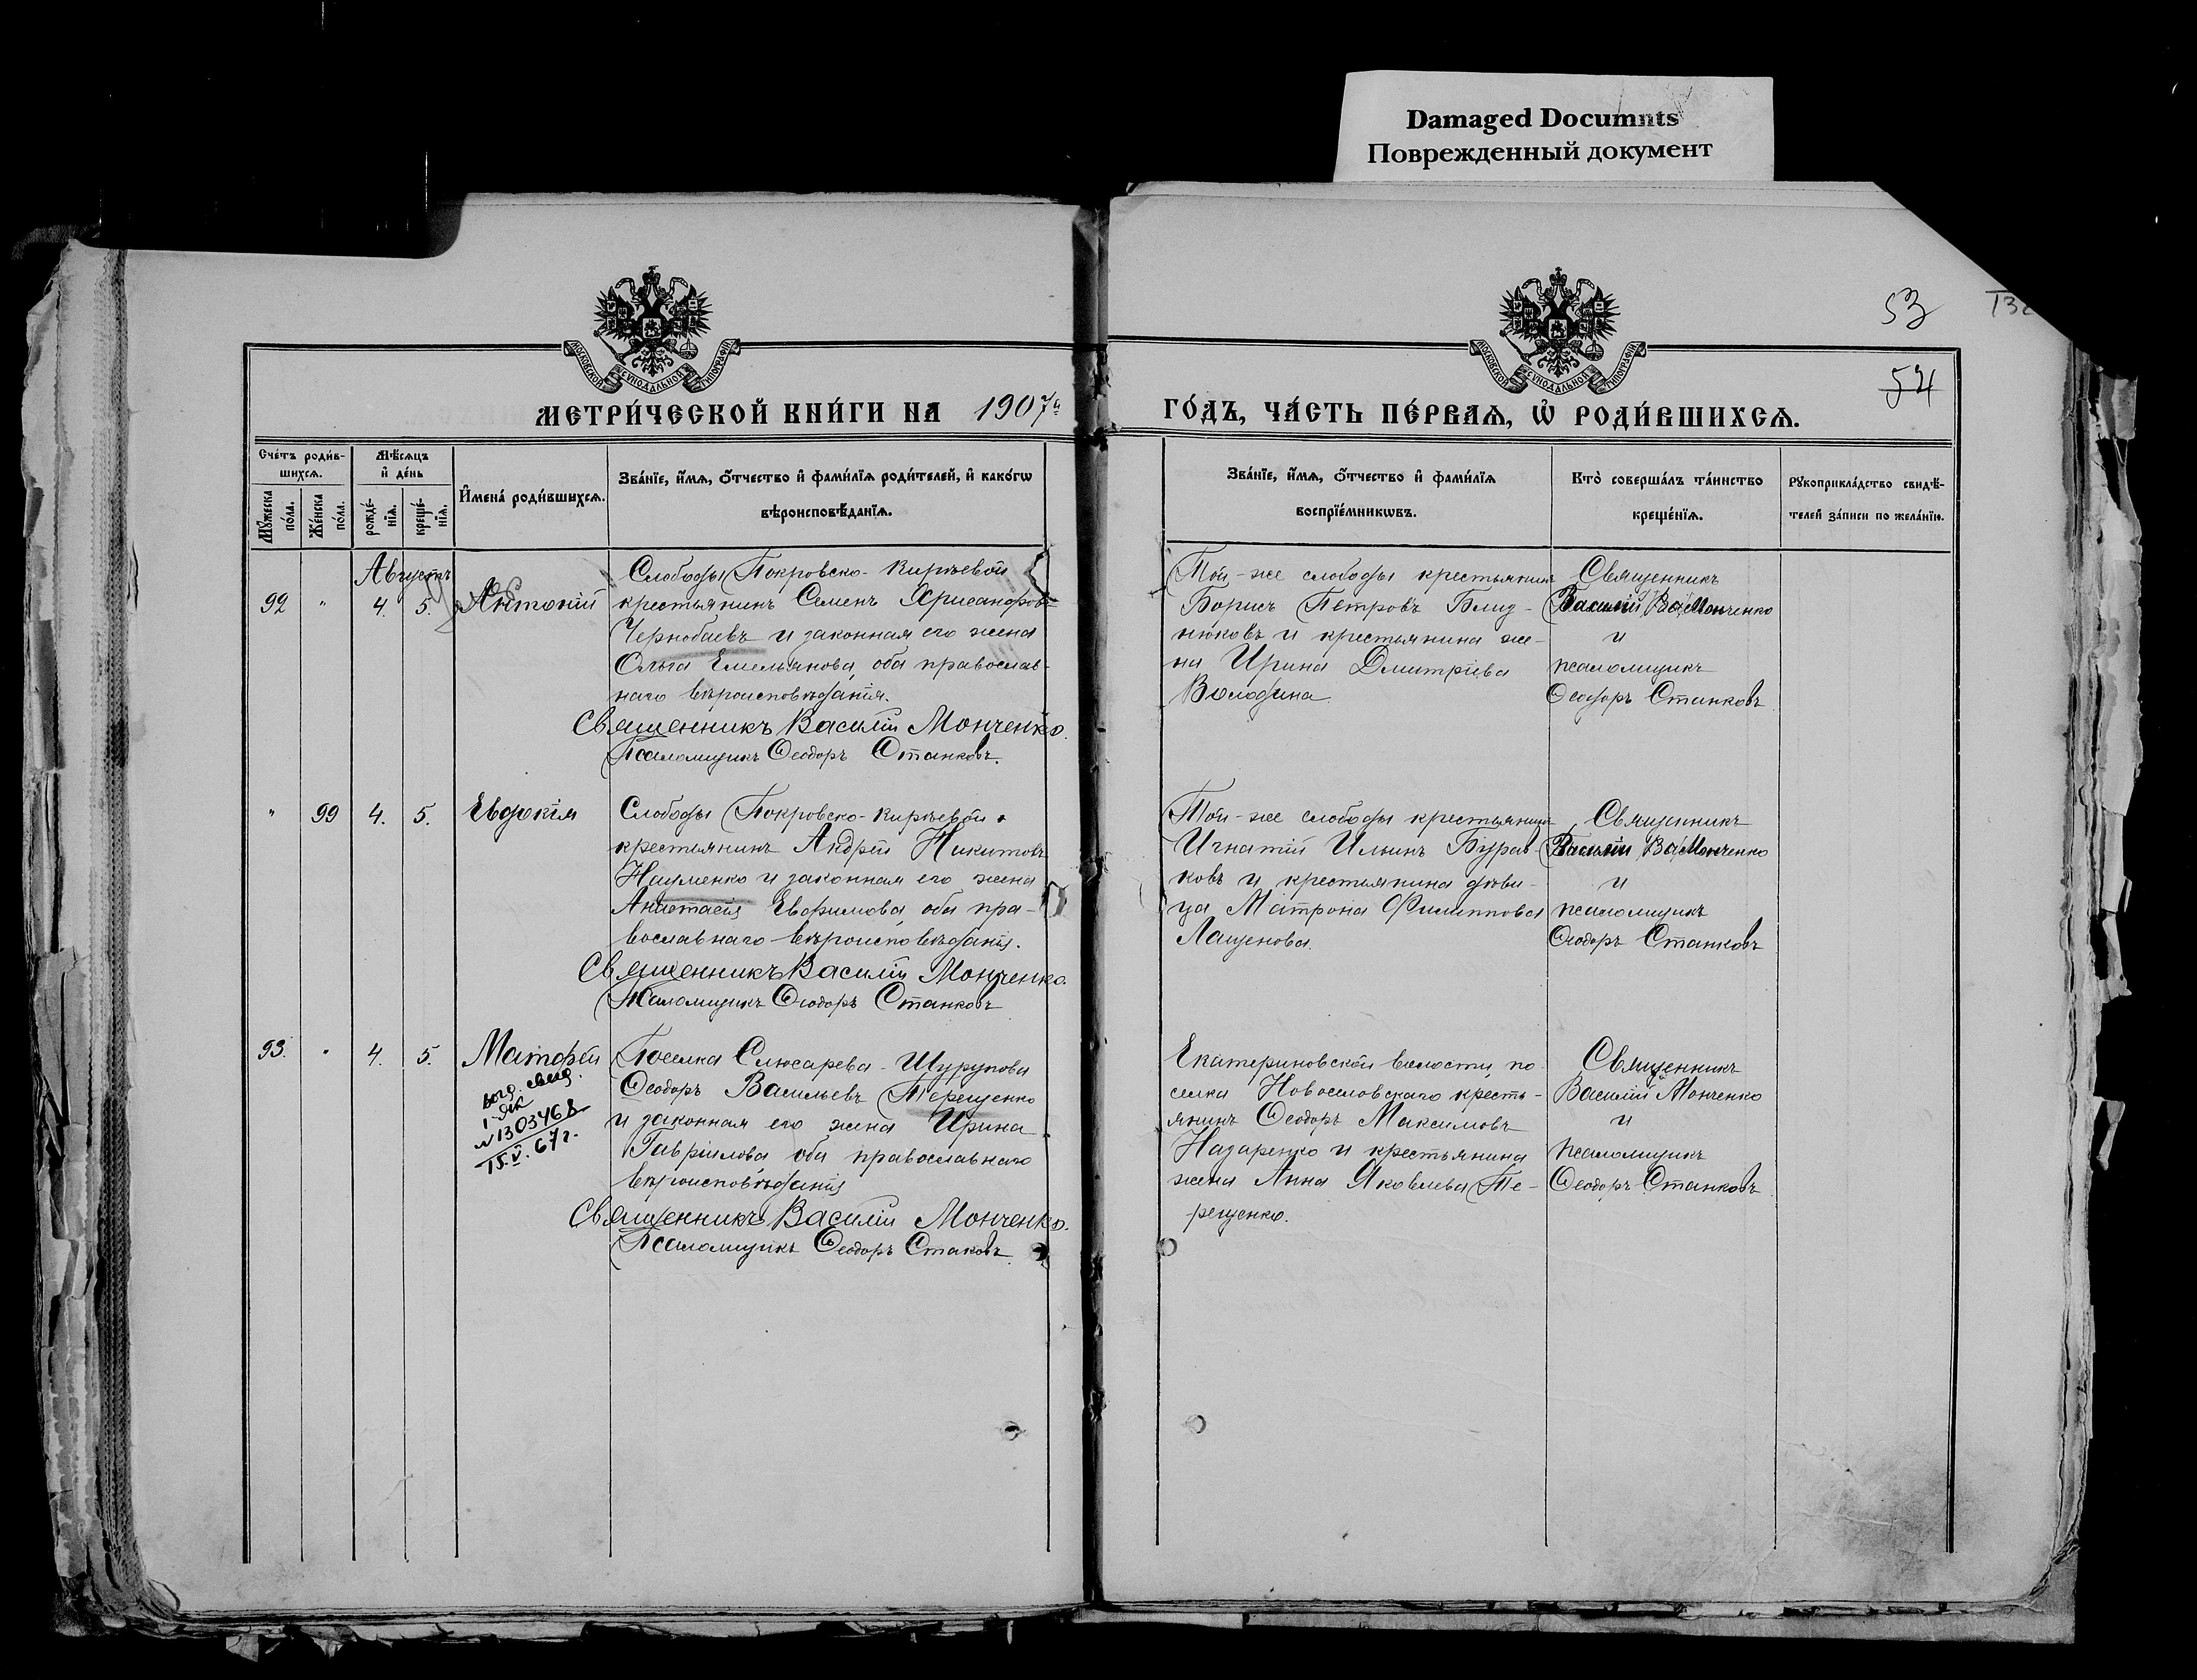 Damaged Documnts
Поврежденный документ
53
132
54
МОСКОВСКОЙ СУНОДАЛЬНОЙ ТИПОГРАФІИ
МОСКОВСКОЙ СУНОДАЛЬНОЙ ТИПОГРАФІИ
МЕТРИ́ЧЕСКОЙ КНИ́ГИ НА 1907й
ГО́ДЪ, ЧА́СТЬ ПЕ́РВАѦ, Ѡ҆ РОДИ́ВШИХСѦ.
Сче́тъ роди́в-
шихсѧ.
Мѣ́сѧцъ
и҆ де́нь
Мꙋ́жеска
по́ла.
Же́нска
по́ла.
рожде́-
нїѧ.
креще́-
нїѧ.
И҆мена̀ роди́вшихсѧ.
Зва́нїе, и҆́мѧ, ѻ҆́тчество и҆ фами́лїѧ роди́телей, и҆ како́гѡ
вѣроисповѣ́данїѧ.
Зва́нїе, и҆́мѧ, ѻ҆́тчество и҆ фами́лїѧ
воспрїе́мникѡвъ.
Кто̀ соверша́лъ та́инство
креще́нїѧ.
Рꙋкоприкла́дство свидѣ́-
телей за́писи по жела́нїю.
Августъ
92 " 4. 5. Антоній
Слободы Покровско-Киреевой
крестьянинъ Семенъ Хрисанфовъ
Чернобаевъ и законная его жена
Ольга Емельянова, оба православ-
наго вѣроисповѣданія.
Священникъ Василій Монченко.
Псаломщикъ Ѳеодоръ Станковъ.
Той-же слободы крестьянинъ
Борисъ Петровъ Близ-
нюковъ и крестьянина же-
на Ирина Дмитріева
Володина
Священникъ
Василій Монченко
и
псаломщикъ
Ѳеодоръ Станковъ
" 99 4. 5. Евдокія
Слободы Покровско-Киреевой
крестьянинъ Андрей Никитовъ
Науменко и законная его жена
Анастасія Евфимова, оба пра-
вославнаго вѣроисповѣданія.
Священникъ Василій Монченко.
Псаломщикъ Ѳеодоръ Станковъ
Той-же слободы крестьянинъ
Игнатій Ильинъ Бурав-
ковъ и крестьянина дѣви-
ца Матрона Филиппова
Лащенова.
Священникъ
Василій Монченко
и
псаломщикъ
Ѳеодоръ Станковъ
93. " 4. 5. Матфей
выд. свид.
1-ЯК
№1303468
15.V.67г.
Поселка Слюсарева-Шурупова
Ѳеодоръ Васильевъ Терещенко
и законная его жена Ирина
Гавріилова оба православнаго
вѣроисповѣданія
Священникъ Василій Монченко.
Псаломщикъ Ѳеодоръ Стаковъ.
Екатериновской волости, по-
селка Новоселовскаго кресть-
янинъ Ѳеодоръ Максимовъ
Назаренко и крестьянина
жена Анна Яковлева Те-
рещенко.
Священникъ
Василій Монченко
и
псаломщикъ
Ѳеодоръ Станковъ